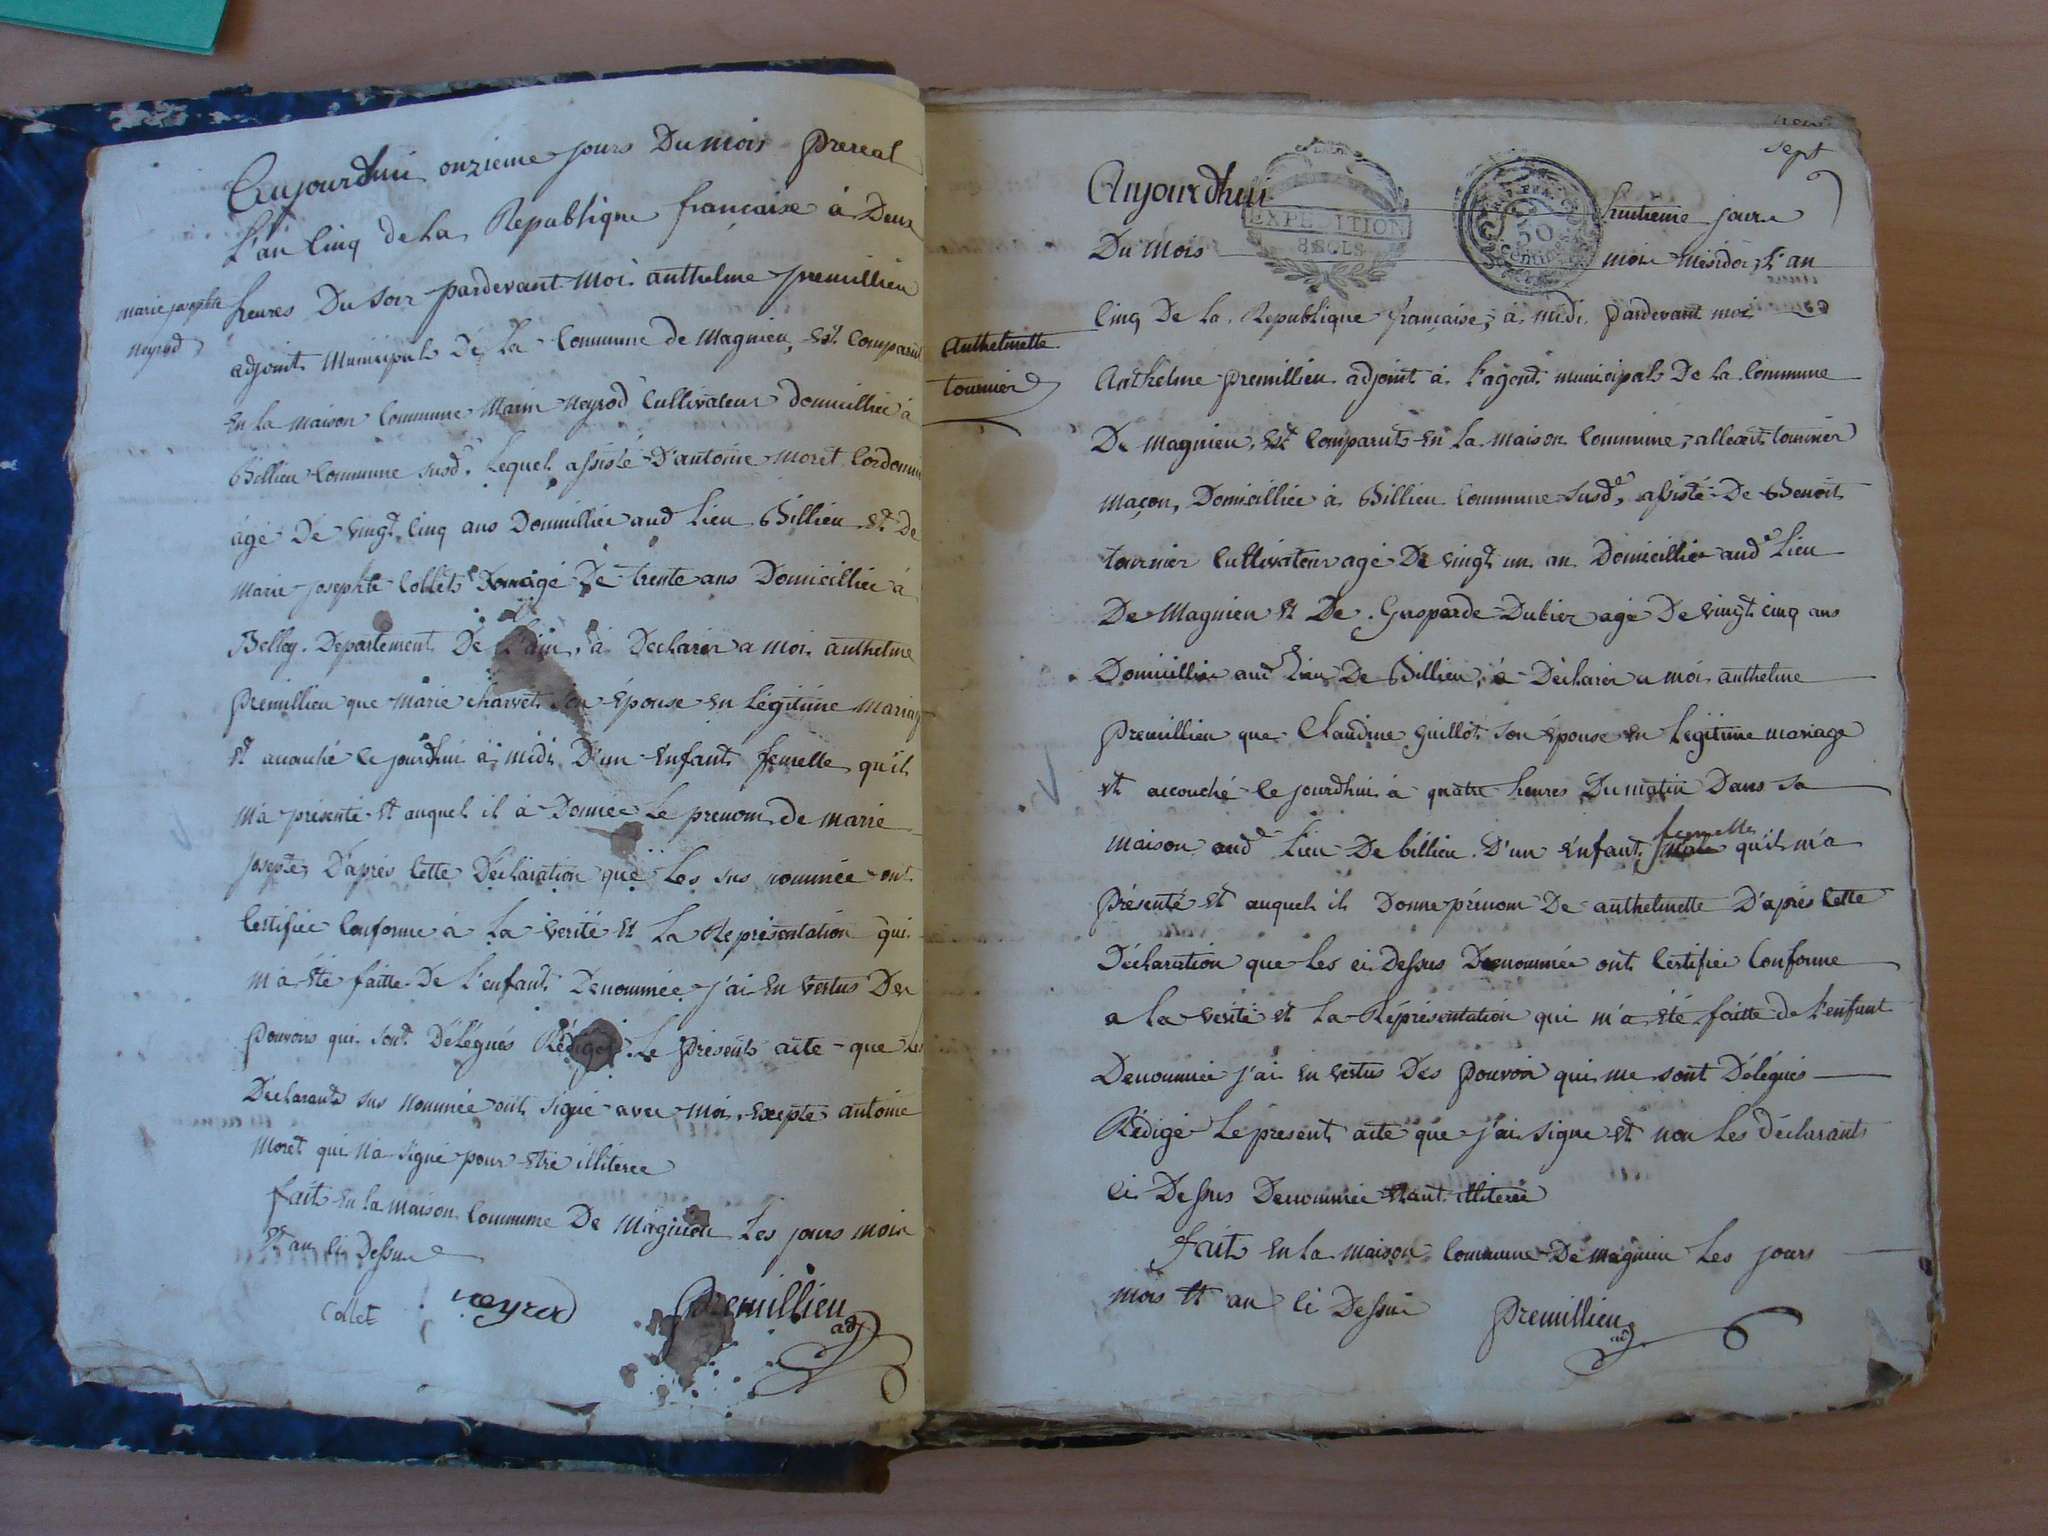 Aujourdhui onzieme jours Du mois prereal
L'an Cinq de La Republique française à Deux
heures Du soir pardevant moi anthelme premillieu
marie josephte
neyrod
adjoint Municipal De La Commune de Magnieu, Est Comparut
En La maison Commune Marin neyrod Cultivateur domicillié à
Billieu Commune susd. Lequel assisté D'antoine moret Cordonnier
âgé De vingt Cinq ans Domicillié aud Lieu Billieu Et De
marie josephte Collet agé De trente ans Domicillié à
Belley. Departement De L'ain, à Declarér a moi anthelme
premillieu que marie charvet son épouse en Légitime mariage
Et accouché cejourdhui à midi D'un Enfant femelle qu'il
m'a présenté Et auquel il à Donnée Le prenom de marie
josepte, D'après Cette Declaration que Les sus nommée ont
Certifiée Conforme à La verité Et La Représentation qui
m'a Eté faitte De L'enfant Denommée j'ai En vertus Des
pouvoirs qui sont Délégués Rédigé Le présents acte que Les
Déclarants sus nommée ont signé avec moi, Excepté antoine
moret qui n'a signé pour Etre illiterée
fait En La maison Commune De Magnieu Les jours mois
Et an Ci Dessus
Collet neyrod premillieu
adj
sept
Aujourdhui huitieme jour
EXPEDITION
8 SOLS
50
Centimes
Du Mois mois mésidor, L'an
Cinq De La Republique française, à midi pardevant moi
Anthelmette
tournier
Anthelme premillieu adjoint à L'agent municipal De La Commune
De magnieu, Est Comparut En La maison Commune, tournier
maçon, Domicillié à Billieu Commune susde, assisté De Benoit
tournier Cultivateur agé De vingt un an Domicillié aude Lieu
De Magnieu Et De Gasparde Dubier agé De vingt cinq ans
Domicillié aud Lieu De Billieu, à Déclarér a moi anthelme
premillieu que Claudine Guillot son épouse en Légitime mariage
Et accouché cejourdhui à quatre heures Du matin Dans sa
maison aude Lieu De billieu. D'un Enfant femelle qu'il m'a
Présenté Et auquel il Donne prénom De anthelmette D'après Cette
Déclaration que Les ci Dessus Denommée ont Certifiée Conforme
a La verité Et La Réprésentation qui m'a Eté faitte de L'enfant
Denommée j'ai En vertus Des pouvoir qui me sont Délégués
Rédigé Le present acte que j'ai signé Et non Les déclarants
ci Dessus Denommée Etant illiterée
fait En La maison Commune De magnieu Les jours
mois Et an Ci Dessus premillieu
adj